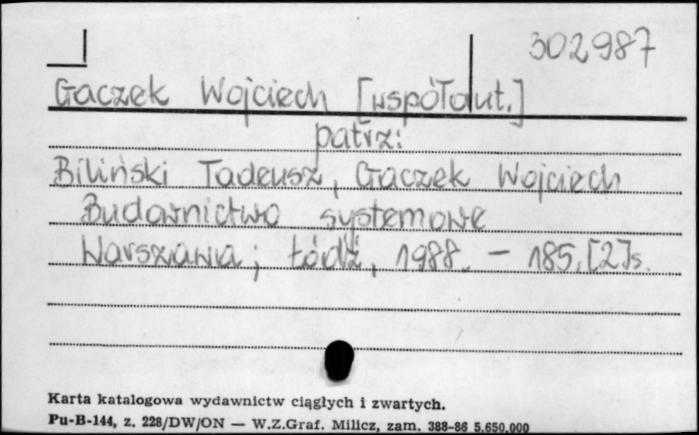 302987
Gaczek Wojciech [współaut.]
patrz:
Biliński Tadeusz, Gaczek Wojciech
Budownictwo systemowe
Warszawa; Łódź, 1988. - 185, [2] s.
Karta katalogowa wydawnictw ciągłych i zwartych.
Pu-B-144, z. 228/DW/ON — W.Z.Graf. Milicz, zam. 388-86 5.650.000